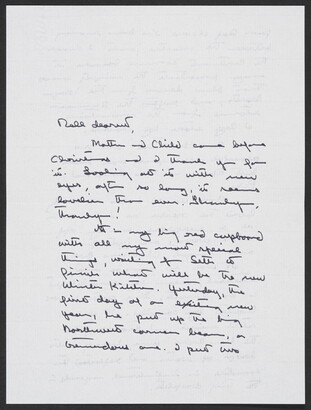 Moll dearest,
Mother & Child came before
Christmas and I thank you for
it. Looking at it with new
eyes, after so long, it seems
lovelier than ever. Thankyou,
Thankyou!
It's in my big red cupboard
with all my most special
things, waiting for Seth to
finish what will be the new
Winter Kitchen. Yesterday, the
first day of an exciting new
year, he put up the big
Northwest corner beam, a
tremendous one. I put two